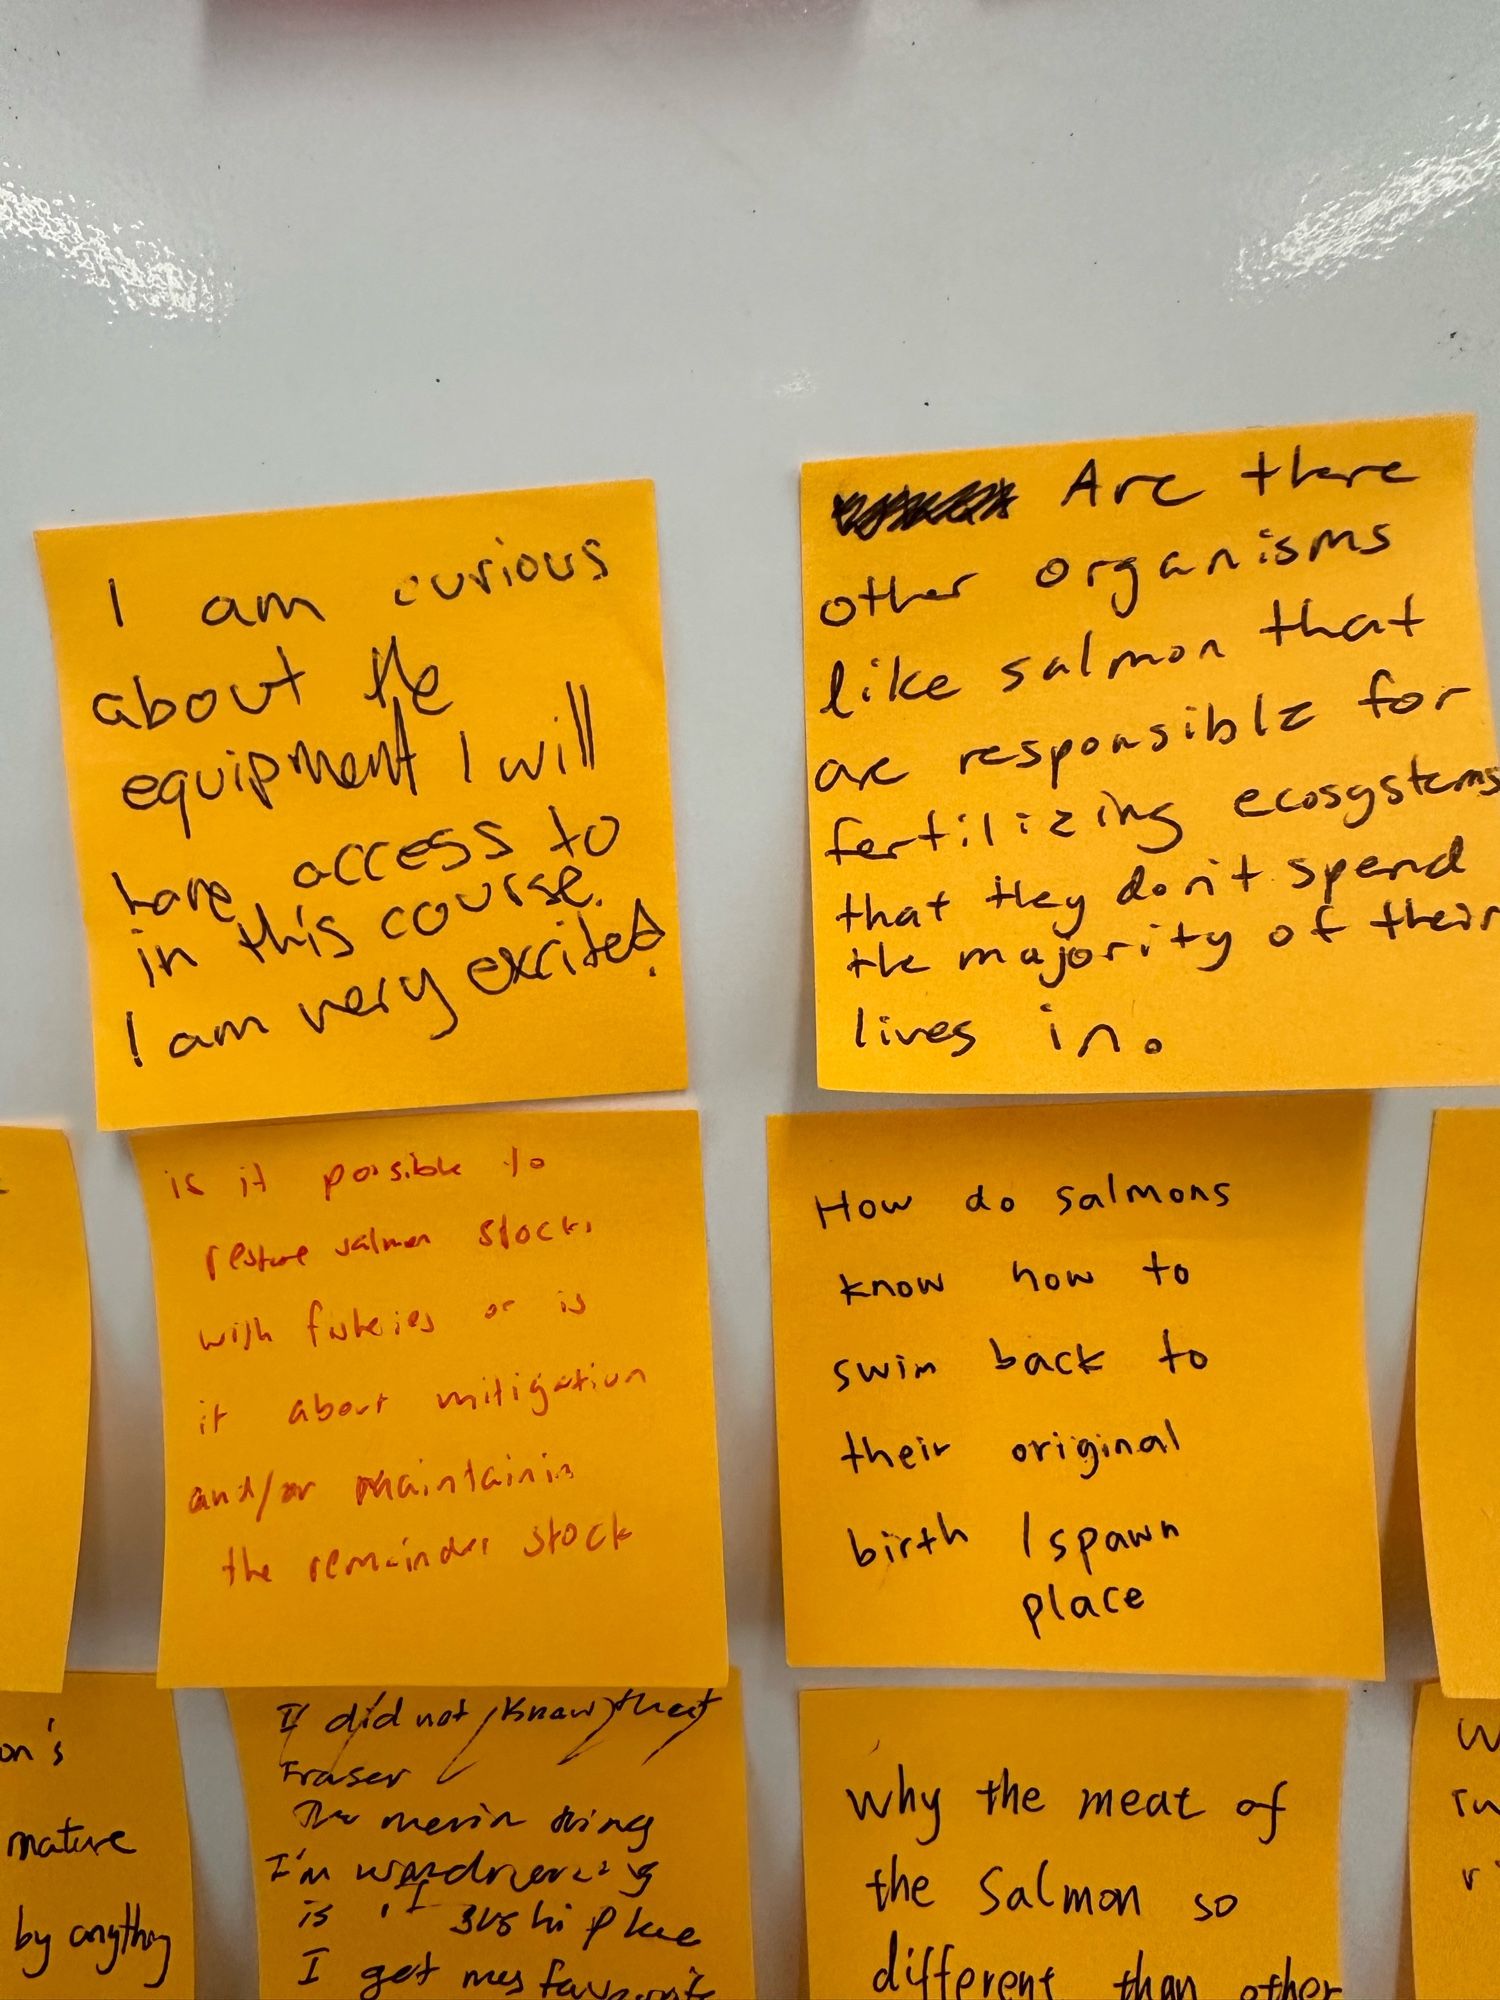 I am curious
about the
equipment I will
have access to
in this course.
I am very excited!
Are there
other organisms
like salmon that
are responsible for
fertilizing ecosystems
that they don't spend
the majority of their
lives in.
is it possible to
restore salmon stocks
with fisheries or is
it about mitigation
and/or maintainin
the remainder stock
How do salmons
know how to
swim back to
their original
birth / spawn
place
on's
mature
by anything
If did not know that
Fraser
The main thing
I'm
is I sushi place
I get my favourite
why the meat of
the Salmon so
different than other